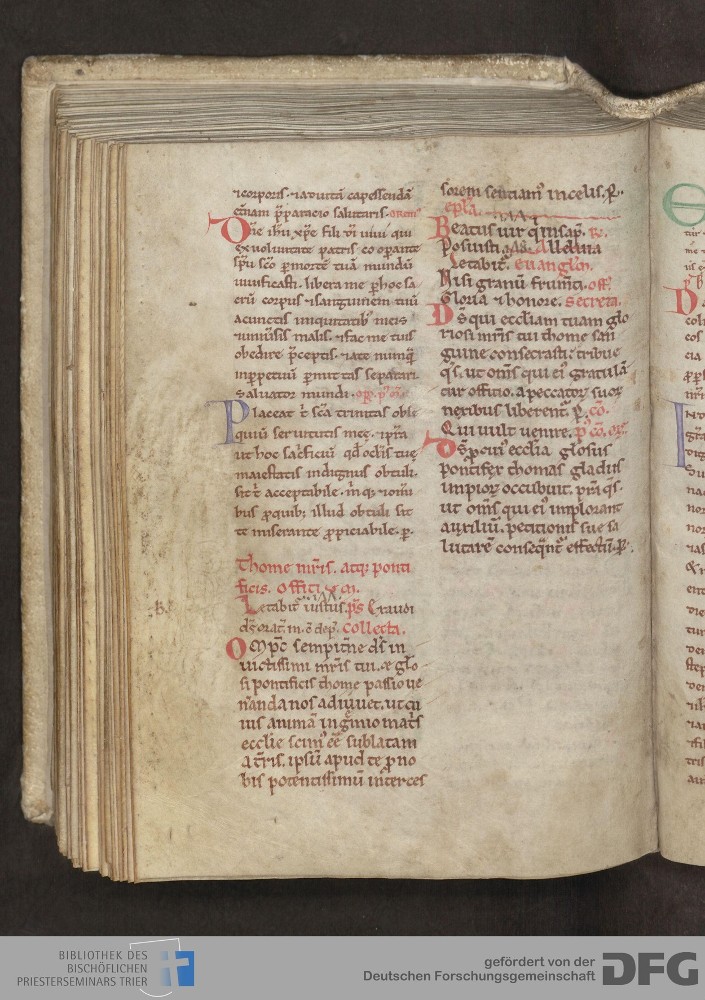 ⁊corporis. ⁊aduitā capessendā
et̄nam p̄paracio salutaris. oratio
Dn̄e ih̄u xp̄e fili di uiui qui
ex uoluntate patris co operante
sp̄u sc̄o p̄ mortē tuā mundū
uiuificasti. libera me p̄ hoc sa
crū corpus ⁊ sanguinem tuū
a cunctis iniquitatib' meis
⁊ uniūsis malis. ⁊ fac me tuis
obedire p̄ceptis. ⁊ a te nunquā
inp̄petuū p̄mittas separari
saluator mundi.
Placeat t̄ sc̄a trinitas obse
quiū seruitutis meę. ⁊ p̄sta
ut hoc sac̄ficiū qd̄ oclis tuę
maiestatis indignus obtuli.
sit t̄ acceptabile. m̄q; ⁊ om̄i
bus p̄ quib; illud obtuli sit
te miserante p̄piciabile. p.
Thome mr̄is. atq; ponti
ficis. Officiū
B.
Letabit' iustus. ps̄ Exaudi
ds̄ orat̄. m. c̄ dep̄. Collecta.
Omp̄s sempitn̄e ds̄ in
uictissimi mr̄is tui. ⁊ glo
si pontificis thome passio ue
n̄anda nos adiuuet. ut cu
ius animā ingr̄mio mat̄s
ecclie scim' eē sublatam
a t̄ris. ipsū apud te p̄ no
bis potentissimū interces
sorem sentiam' in celis. p.
epl̄a.
Beatus uir q̇ insap̄. R.
Posuisti Alleluia
Letabit'. Euangl̄m.
Nisi granū frum̄ti. off.
Gloria ⁊ honore. Secreta.
Ds̄ qui eccliam tuam glo
riosi mr̄is tui thome san
guine consecrasti. tribue
q̄s. ut om̄s qui ei' gratulā
tur officio. a peccatoꝝ suoꝝ
nexibus liberent'. p. cō.
Qui uult uenire. p' cō. or̄.
Ds̄ p̄ cui' ecclia gl̄osus
pontifex thomas gladiis
impioꝝ occubuit. pr̄a q̄s.
ut om̄s qui ei' implorant
auxiliū. petitionis sue sa
lutarē conseqn̄t' effectū. p.
BIBLIOTHEK DES
BISCHÖFLICHEN
PRIESTERSEMINARS TRIER
gefördert von der
Deutschen Forschungsgemeinschaft
DFG